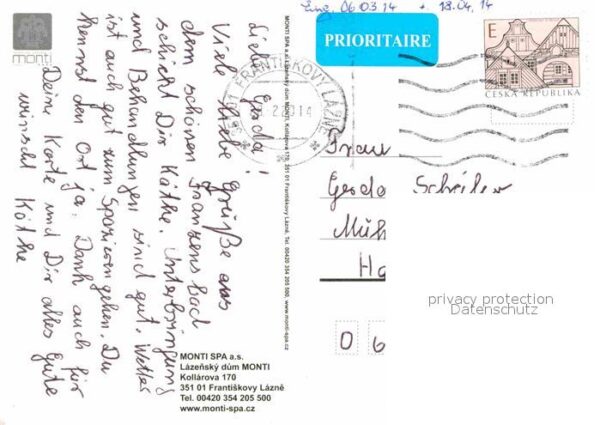 Eing. 06.03.14 + 18.04.14
monti
PRIORITAIRE
E
ČESKÁ REPUBLIKA
FRANTIŠKOVY LÁZNĚ
Liebe Gerda!
Viele liebe Grüße aus
dem schönen Franzensbad
schickt Dir Käthe. Unterbringung
und Behandlungen sind gut. Wetter
ist auch gut zum Spazieren gehen. Du
kennst den Ort ja. Dank auch für
Deine Karte und Dir alles Gute
wünscht Käthe
MONTI SPA a.s. Lázeňský dům MONTI, Kollárova 170, 351 01 Františkovy Lázně, Tel. 00420 354 205 500, www.monti-spa.cz
Frau
Gerda
Müh
Ha
0 6
privacy protection
Datenschutz
MONTI SPA a.s.
Lázeňský dům MONTI
Kollárova 170
351 01 Františkovy Lázně
Tel. 00420 354 205 500
www.monti-spa.cz